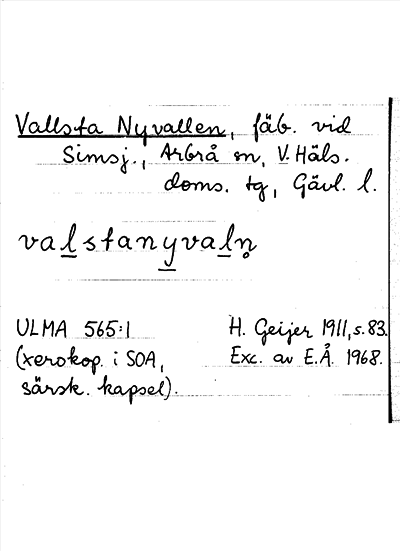 Vallsta Nyvallen, fäb. vid
Simsj., Arbrå sn, V. Häls.
doms. tg, Gävl. l.
valstanyvaln̥
ULMA 565:1
(xerokop. i SOA,
särsk. kapsel).
H. Geijer 1911, s. 83.
Exc. av E.Å. 1968.